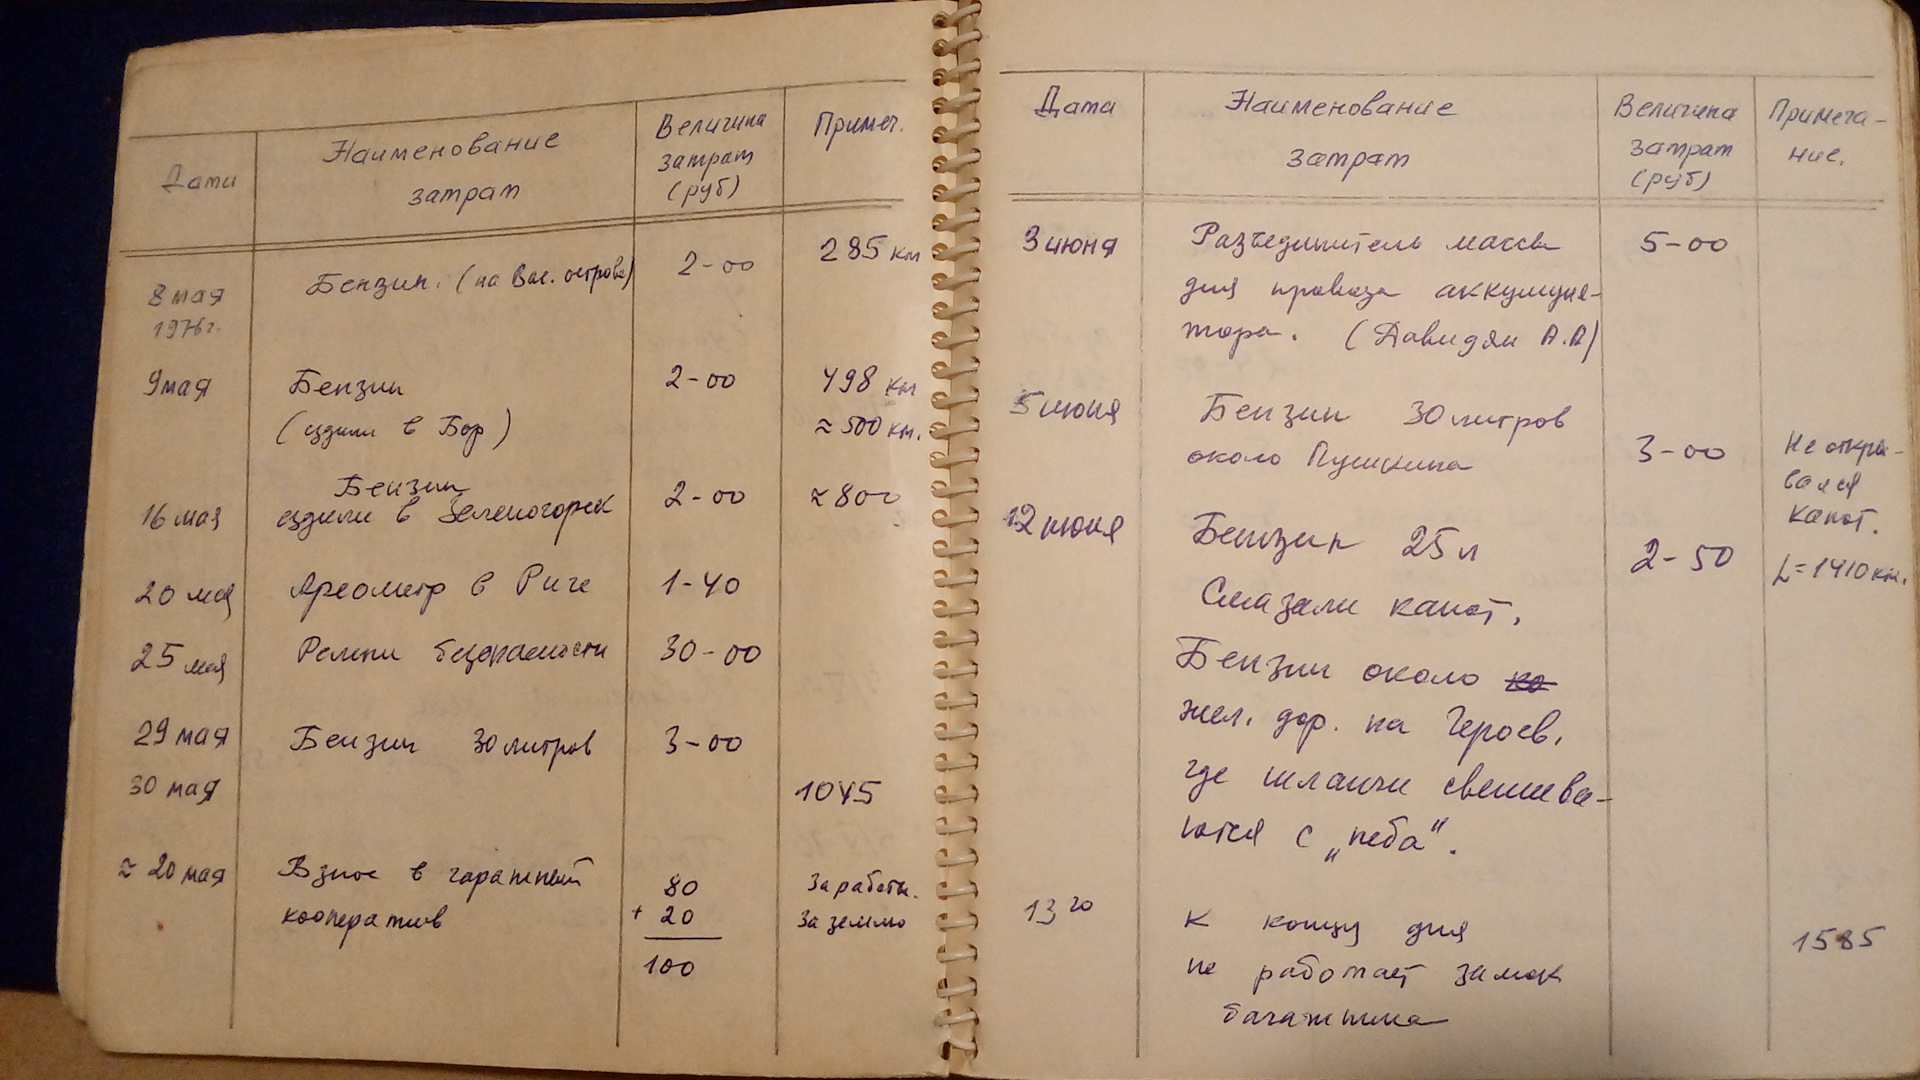 Дата
Наименование
затрат
Величина
затрат
(руб)
Примеч.
8 мая
1976г.
Бензин. (на Вас. острове)
2-00
285 км
9 мая
Бензин
2-00
498 км
(ездили в Бор)
≈ 500 км.
Бензин
16 мая
ездили в Зеленогорск
2-00
≈ 800
20 мая
Ареометр в Риге
1-40
25 мая
Ремни безопасности
30-00
29 мая
Бензин 30 литров
3-00
30 мая
1045
≈ 20 мая
Взнос в гаражный
80
За работы.
кооператив
+ 20
За землю
100
Дата
Наименование
затрат
Величина
затрат
(руб)
Примеча-
ние.
3 июня
Разъединитель массы
5-00
для провода аккумуля-
тора. (Давидян А.А)
5 июня
Бензин 30 литров
около Пушкина
3-00
Не откры-
вался
капот.
12 июня
Бензин 25 л
2-50
L = 1410 км.
Смазали капот.
Бензин около
жел. дор. на Героев,
где шланги свешива-
ются с „неба".
13го
К концу дня
1585
не работает замок
багажника